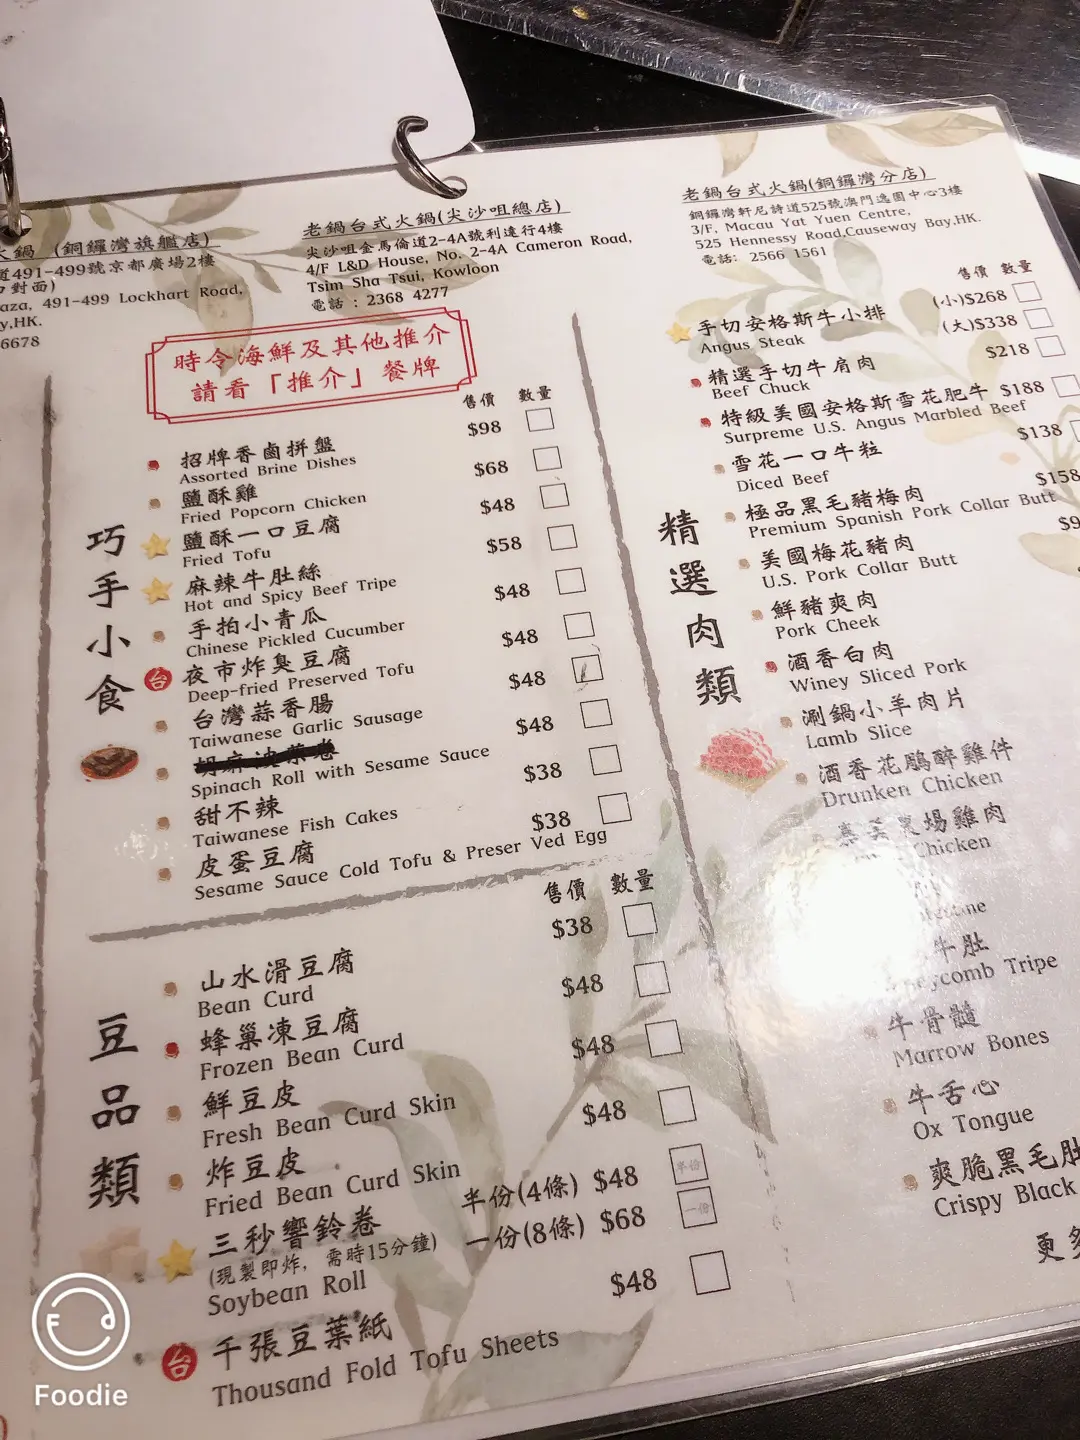 火鍋 (銅鑼灣旗艦店)
道491-499號京都廣場2樓
對面)
aza, 491-499 Lockhart Road,
y,HK.
6678
老鍋台式火鍋(尖沙咀總店)
尖沙咀金馬倫道2-4A號利達行4樓
4/F L&D House, No. 2-4A Cameron Road,
Tsim Sha Tsui, Kowloon
電話 : 2368 4277
老鍋台式火鍋(銅鑼灣分店)
銅鑼灣軒尼詩道525號澳門逸園中心3樓
3/F, Macau Yat Yuen Centre,
525 Hennessy Road,Causeway Bay,HK.
電話: 2566 1561
時令海鮮及其他推介
請看「推介」餐牌
巧手小食
售價 數量
招牌香鹵拼盤 $98
Assorted Brine Dishes
鹽酥雞 $68
Fried Popcorn Chicken
鹽酥一口豆腐 $48
Fried Tofu
麻辣牛肚絲 $58
Hot and Spicy Beef Tripe
手拍小青瓜 $48
Chinese Pickled Cucumber
台 夜市炸臭豆腐 $48
Deep-fried Preserved Tofu
台灣蒜香腸 $48
Taiwanese Garlic Sausage
胡麻菠菜卷 $48
Spinach Roll with Sesame Sauce
甜不辣 $38
Taiwanese Fish Cakes
皮蛋豆腐 $38
Sesame Sauce Cold Tofu & Preser Ved Egg
豆品類
售價 數量
山水滑豆腐 $38
Bean Curd
蜂巢凍豆腐 $48
Frozen Bean Curd
鮮豆皮 $48
Fresh Bean Curd Skin
炸豆皮 $48
Fried Bean Curd Skin
三秒響鈴卷 半份(4條) $48 半份
(現製即炸, 需時15分鐘) 一份(8條) $68 一份
Soybean Roll
台 千張豆葉紙 $48
Thousand Fold Tofu Sheets
精選肉類
售價 數量
手切安格斯牛小排 (小)$268
Angus Steak (大)$338
精選手切牛肩肉 $218
Beef Chuck
特級美國安格斯雪花肥牛 $188
Surpreme U.S. Angus Marbled Beef
雪花一口牛粒 $138
Diced Beef
極品黑毛豬梅肉 $158
Premium Spanish Pork Collar Butt
美國梅花豬肉 $9
U.S. Pork Collar Butt
鮮豬爽肉
Pork Cheek
酒香白肉
Winey Sliced Pork
涮鍋小羊肉片
Lamb Slice
酒香花鵰醉雞件
Drunken Chicken
嘉美黑場雞肉
Chicken
牛肚
Tripe
牛骨髓
Marrow Bones
牛舌心
Ox Tongue
爽脆黑毛肚
Crispy Black
更多
Foodie